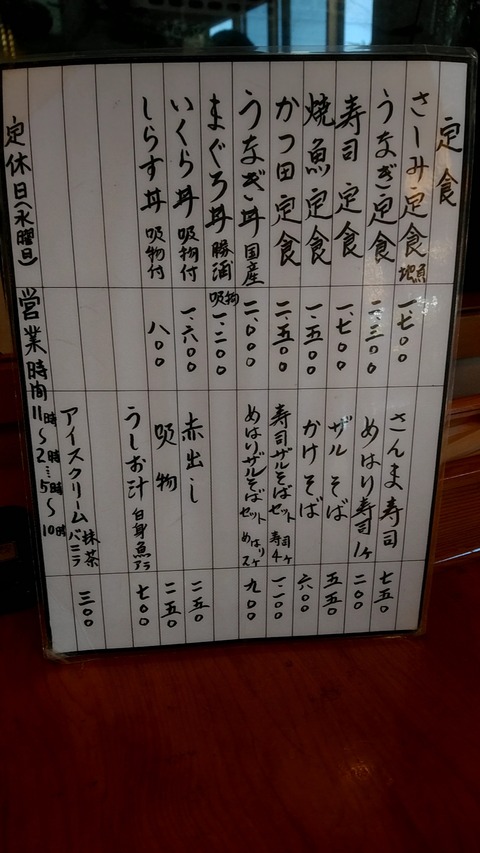 定食
さしみ定食 地魚 一、七〇〇
うなぎ定食 二、三〇〇
寿司定食 一、七〇〇
焼魚定食 一、五〇〇
かつ田定食 二、五〇〇
うなぎ丼 国産 二、〇〇〇
まぐろ丼 勝浦 吸物 一、二〇〇
いくら丼 吸物付 一、六〇〇
しらす丼 吸物付 八〇〇
さんま寿司 七五〇
めはり寿司 1ヶ 二〇〇
ザルそば 五五〇
かけそば 六〇〇
寿司ザルそばセット 寿司4ヶ 一、一〇〇
めはりザルそばセット めはり2ヶ 九〇〇
赤出し 二五〇
吸物 二五〇
うしお汁 白身魚アラ 七〇〇
アイスクリーム 抹茶 バニラ 三〇〇
定休日(水曜日) 営業時間 11時〜2時…5時〜10時